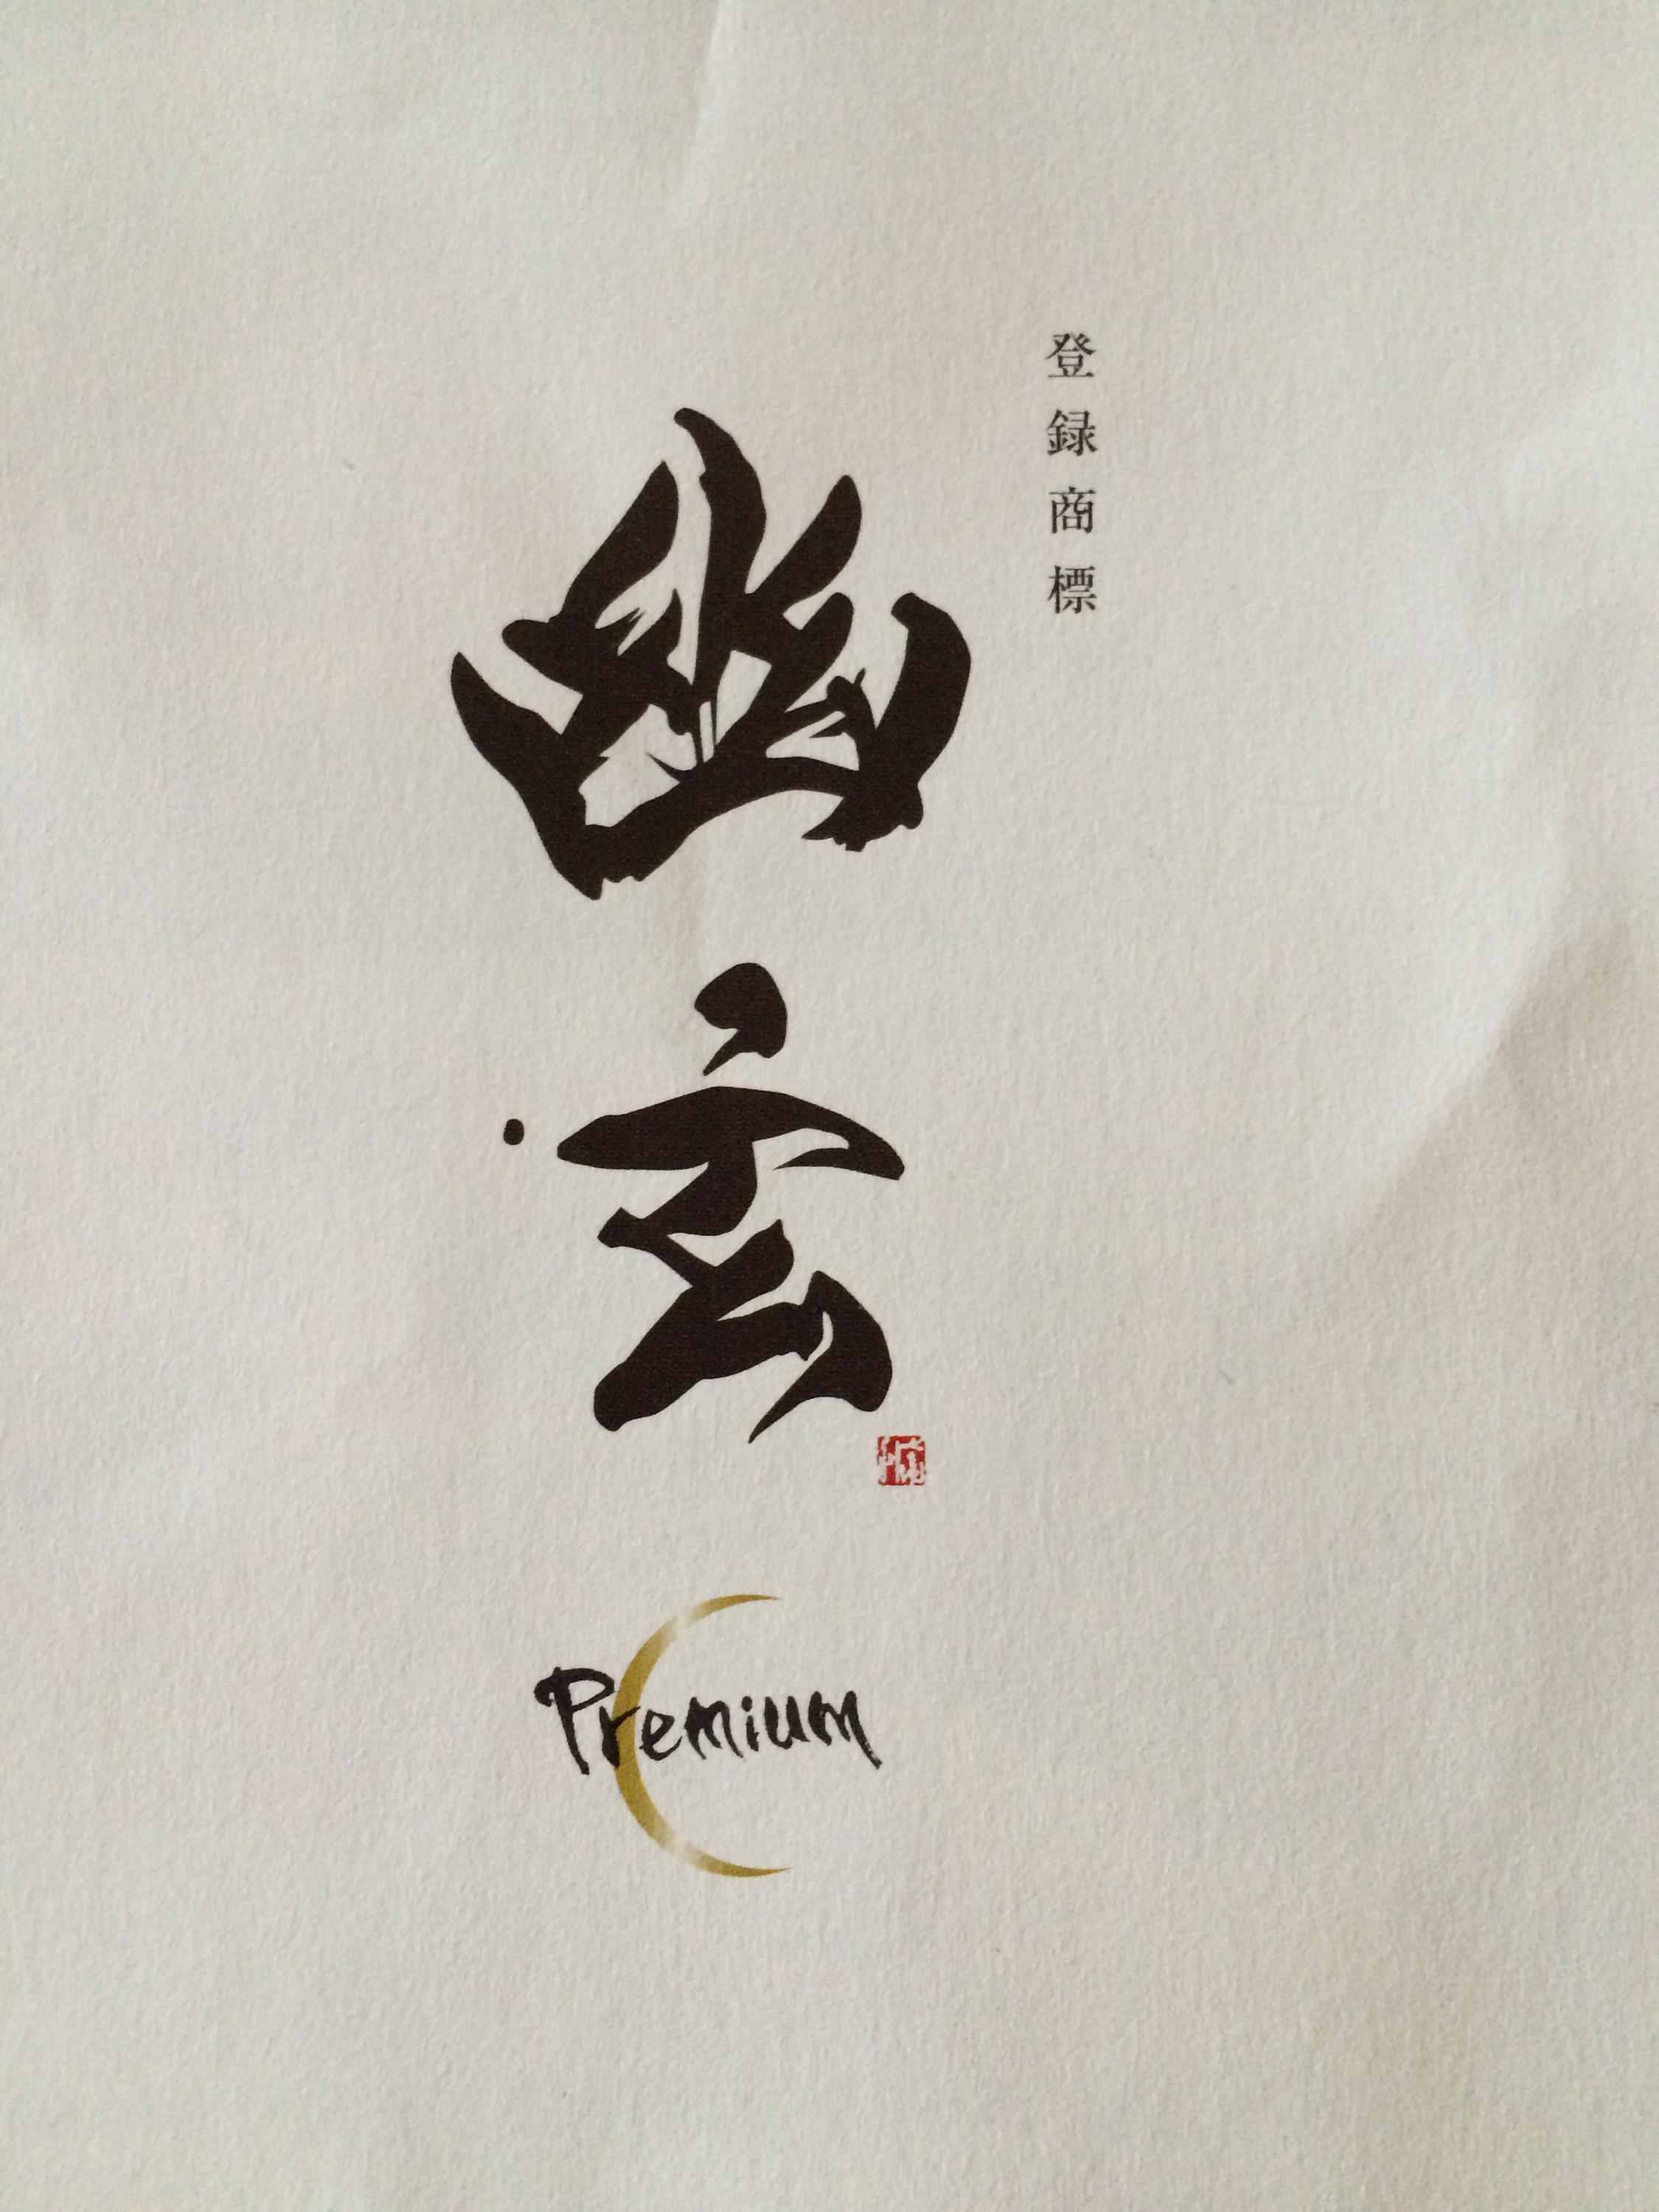 登録商標
幽玄
Premium